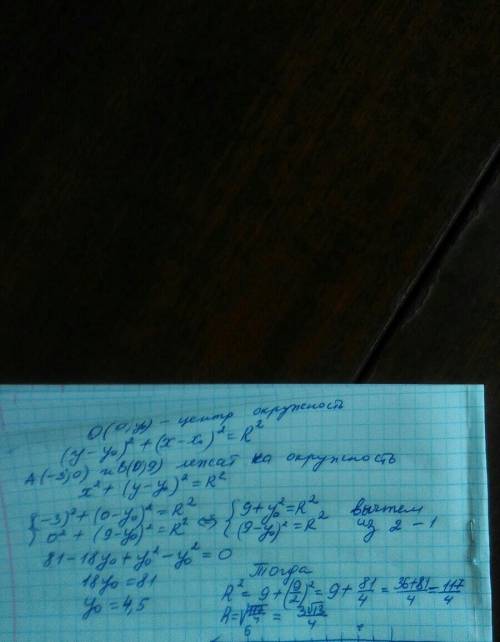 O(0; y₀) – центр окружность
(y – y₀)² + (x – x₀)² = R²
A(-3; 0) и B(0; 9) лежат на окружность
x² + (y – y₀)² = R²
{ (-3)² + (0 – y₀)² = R²
0² + (9 – y₀)² = R² ⇔ { 9 + y₀² = R²
(9 – y₀)² = R² вычтем из 2 – 1
81 – 18y₀ + y₀² – y₀² = 0
18y₀ = 81
y₀ = 4,5
Тогда
R² = 9 + (9/2)² = 9 + 81/4 = (36+81)/4 = 117/4
= 3√13/4